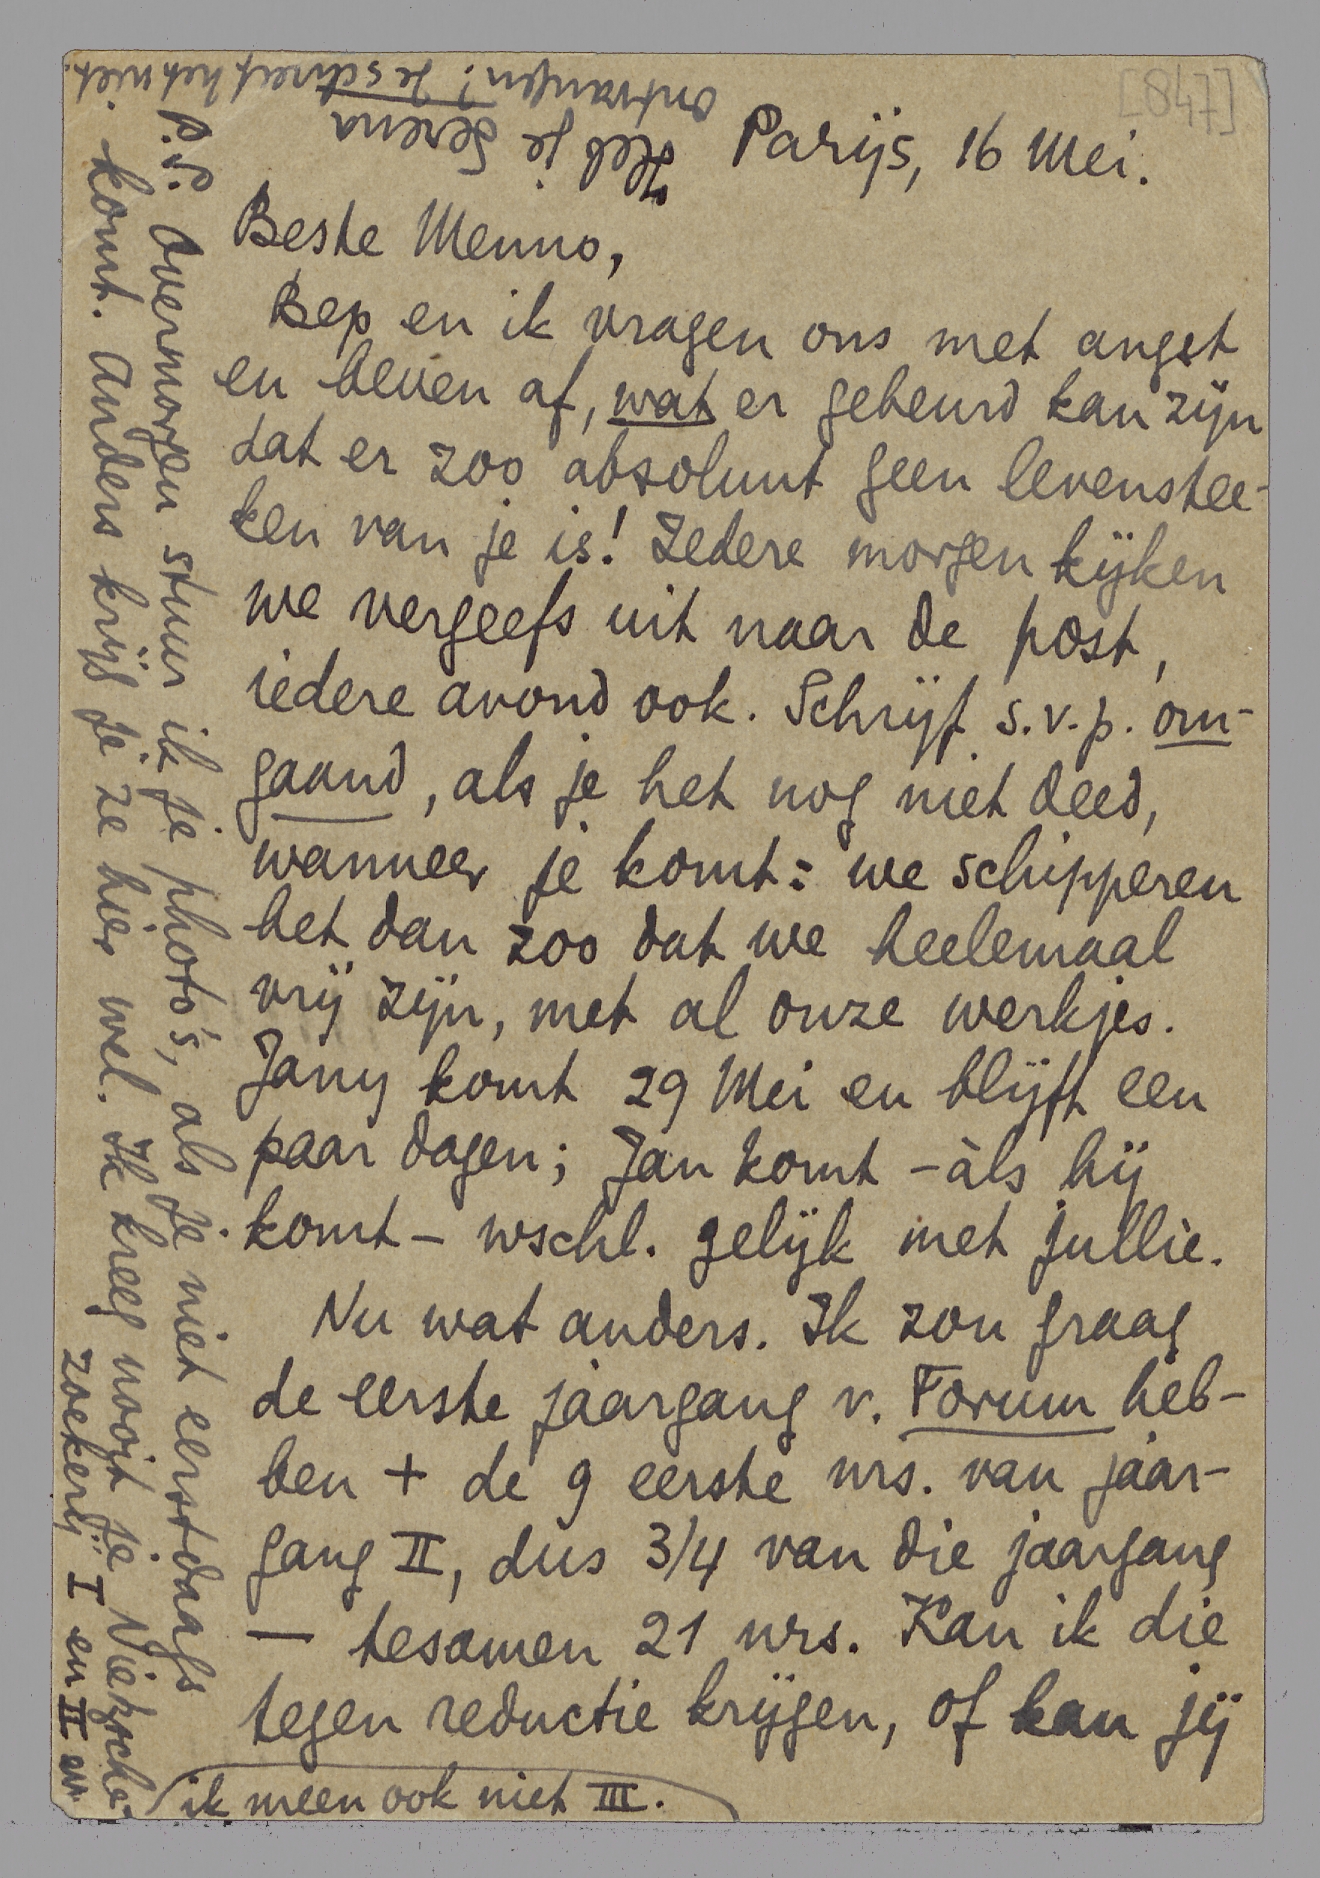 [847]
Parijs, 16 Mei.
Beste Menno,
Bep en ik vragen ons met angst
en beven af, wat er gebeurd kan zijn
dat er zoo absoluut geen levenstee-
ken van je is! Iedere morgen kijken
we vergeefs uit naar de post,
iedere avond ook. Schrijf s.v.p. om-
gaand, als je het nog niet deed,
wanneer je komt: we schipperen
het dan zoo dat we heelemaal
vrij zijn, met al onze werkjes.
Jany komt 29 Mei en blijft een
paar dagen; Jan komt - àls hij
komt - wschl. gelijk met jullie.
Nu wat anders. Ik zou graag
de eerste jaargang v. Forum heb-
ben + de 9 eerste nrs. van jaar-
gang II, dus 3/4 van die jaargang
— tesamen 21 nrs. Kan ik die
tegen reductie krijgen, of kan jij
P.S. Overmorgen stuur ik je photo's, als je niet eerstdaags
komt. Anders krijg je ze hier wel. Ik kreeg nooit je Nietzsche-
zoekerij I en II en
ik meen ook niet III.
Heb je Serena
ontvangen? Je schreef het niet.